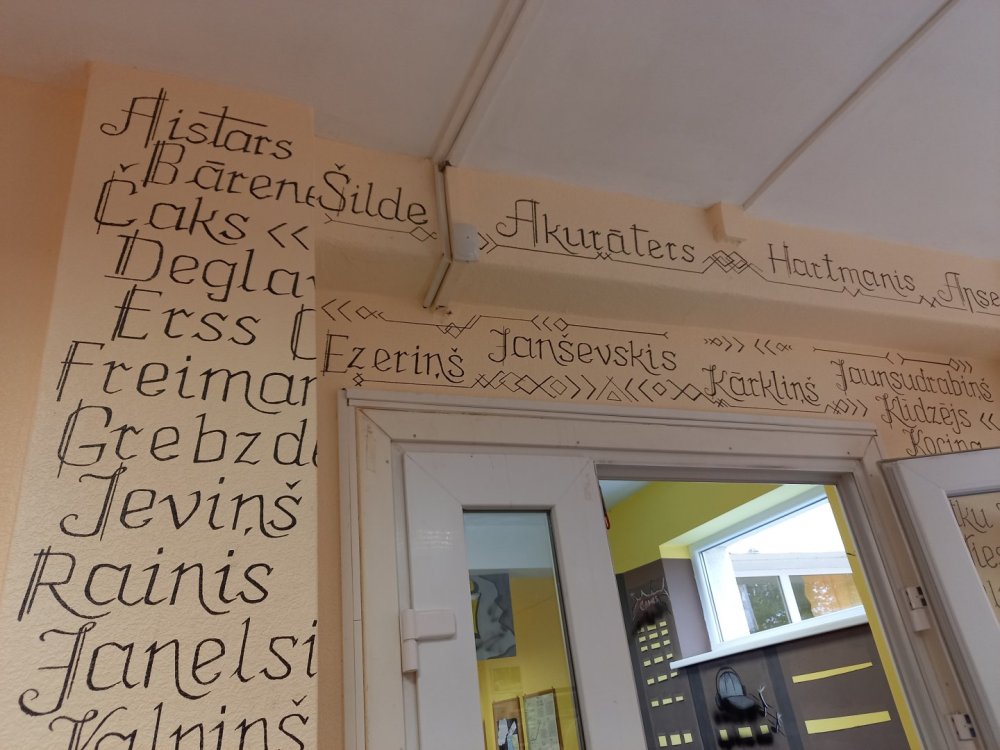 Aistars
Bārene
Čaks <<
Degla
Erss
Freiman
Grebzde
Jeviņš
Rainis
Janelsi
Kalniņš
Šilde
Akurāters
Hartmanis
Apse
Ezeriņš
Janševskis
Kārkliņš
Jaunsudrabiņš
Klidzējs
Kociņa